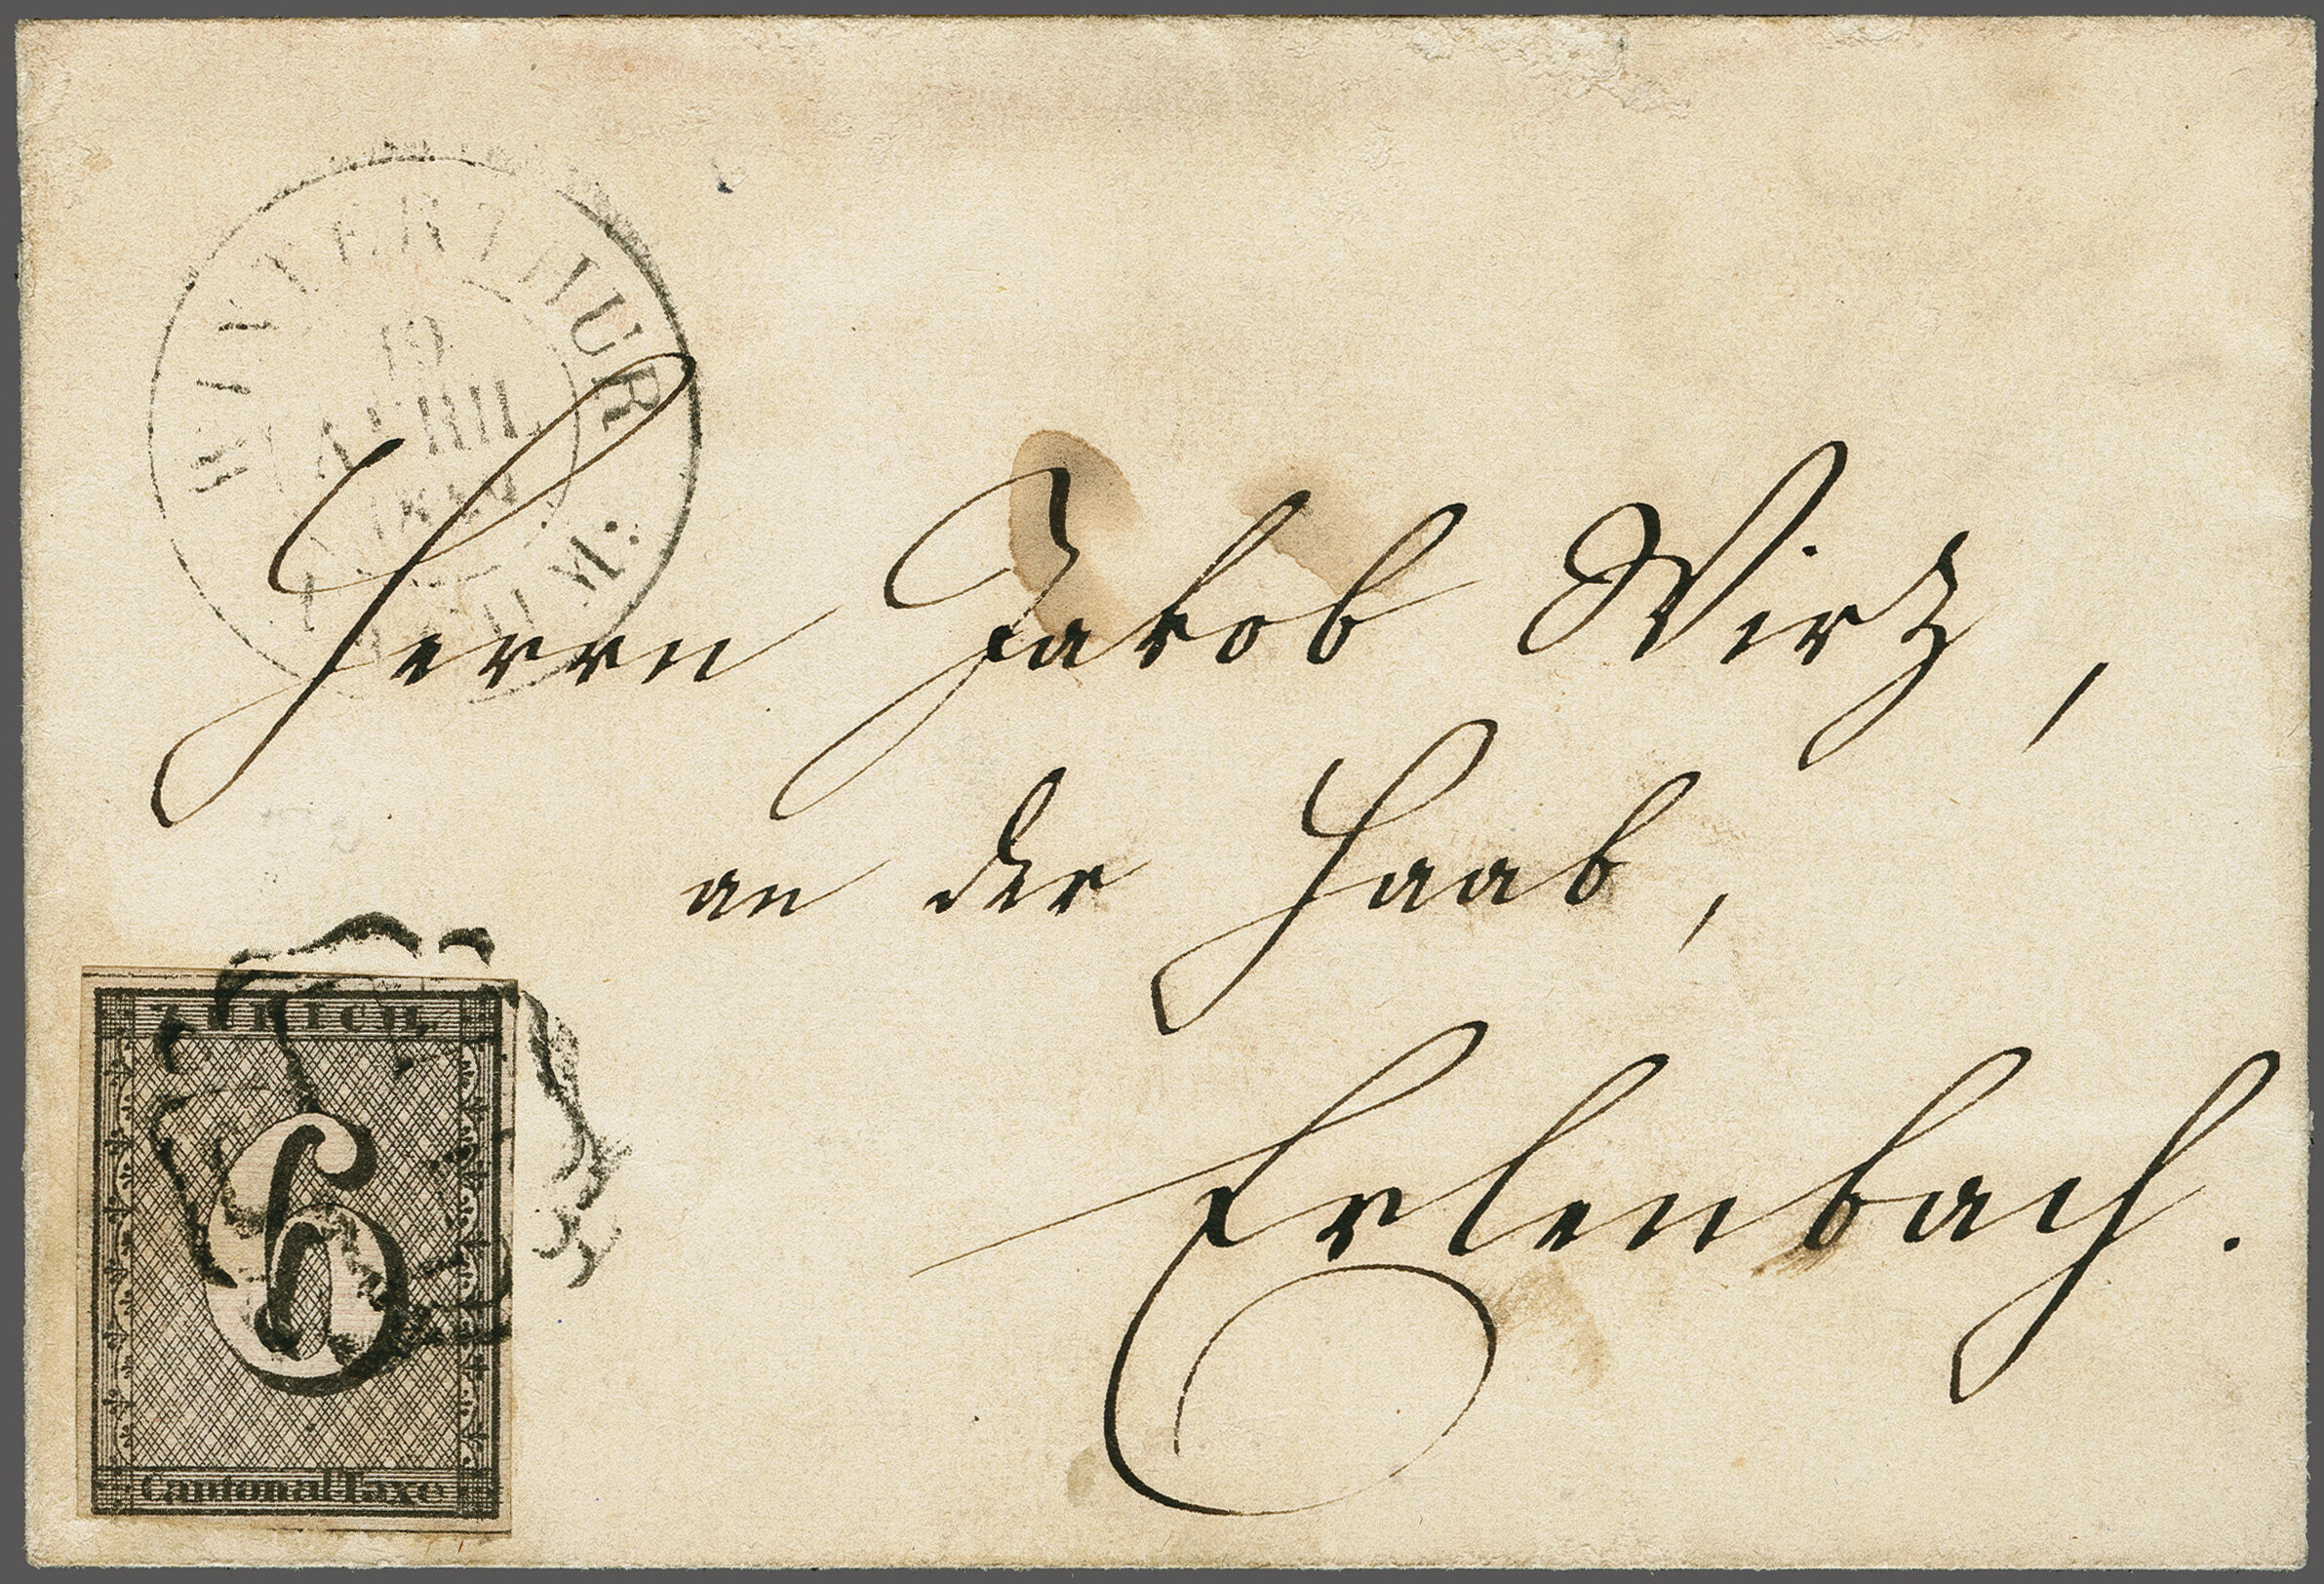 WINTERTHUR
19
APRIL
M:
Herrn Jakob Wirtz,
an der Haab,
Erlenbach.
ZÜRICH
6
Cantonal Taxe